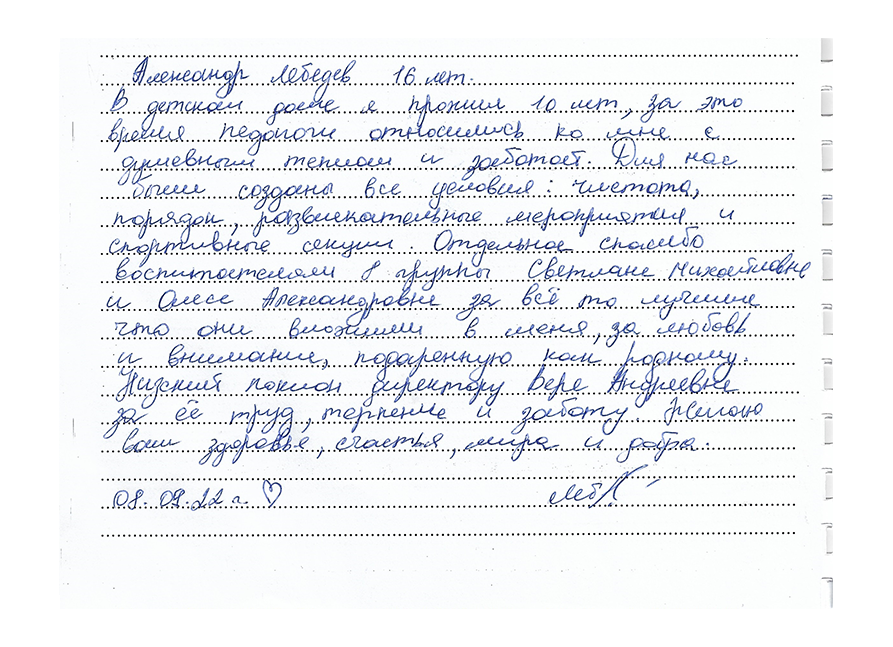 Александр Лебедев 16 лет.
В детском доме я прожил 10 лет, за это
время педагоги относились ко мне с
душевным теплом и заботой. Для нас
были созданы все условия: чистота,
порядок, развлекательные мероприятия и
спортивные секции. Отдельное спасибо
воспитателям 8 группы Светлане Михайловне
и Олесе Александровне за всё то лучшее
что они вложили в меня, за любовь
и внимание, подаренную как родному.
Низкий поклон директору Вере Андреевне
за её труд, терпение и заботу. Желаю
вам здоровья, счастья, мира и добра.
08.09.22 г. ♡